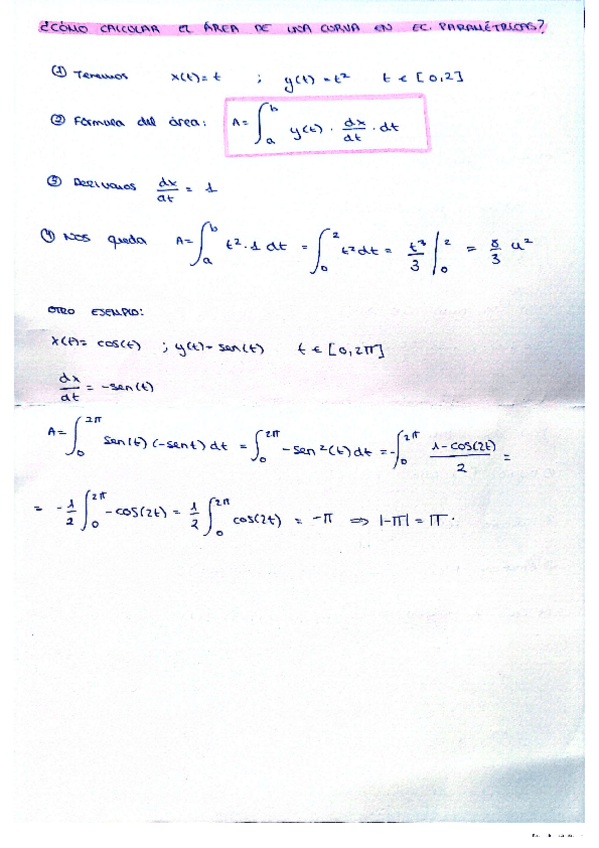 ¿CÓMO CALCULAR EL ÁREA DE UNA CURVA EN EC. PARAMÉTRICAS?
① Tenemos x(t)=t ; y(t)=t² t ∈ [0,2]
② Fórmula del área: A=∫_a^b y(t) · dx/dt · dt
③ Derivamos dx/dt = 1
④ Nos queda A=∫_a^b t²·1 dt = ∫_0^2 t² dt = t³/3 |_0^2 = 8/3 u²
OTRO EJEMPLO:
x(t)= cos(t) ; y(t)= sen(t) t ∈ [0,2π]
dx/dt = -sen(t)
A=∫_0^2π sen(t) (-sen t) dt = ∫_0^2π -sen²(t) dt = -∫_0^2π (1-cos(2t))/2 =
= -1/2 ∫_0^2π -cos(2t) = 1/2 ∫_0^2π cos(2t) = -π ⇒ |-π| = π.